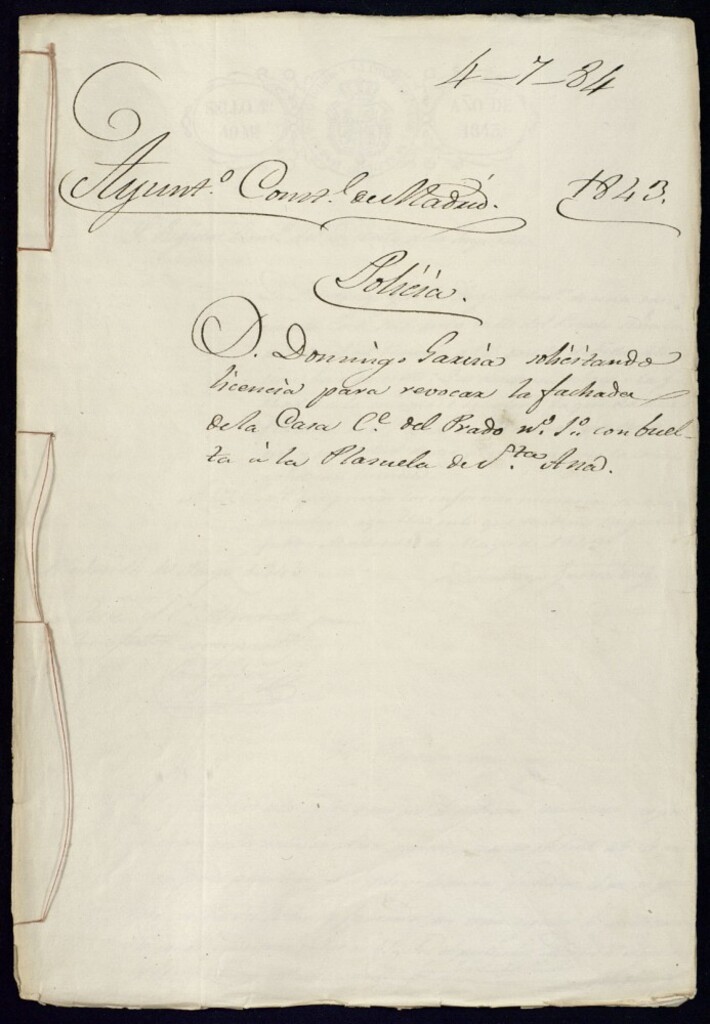 4-7-84
Ayunt.º Const.l de Madrid. 1843.
Policia.
D. Domingo Garcia solicitando
licencia para revocar la fachada
de la Casa C.e del Prado nº. 1º. con buel-
ta à la Plazuela de S.ta Ana.